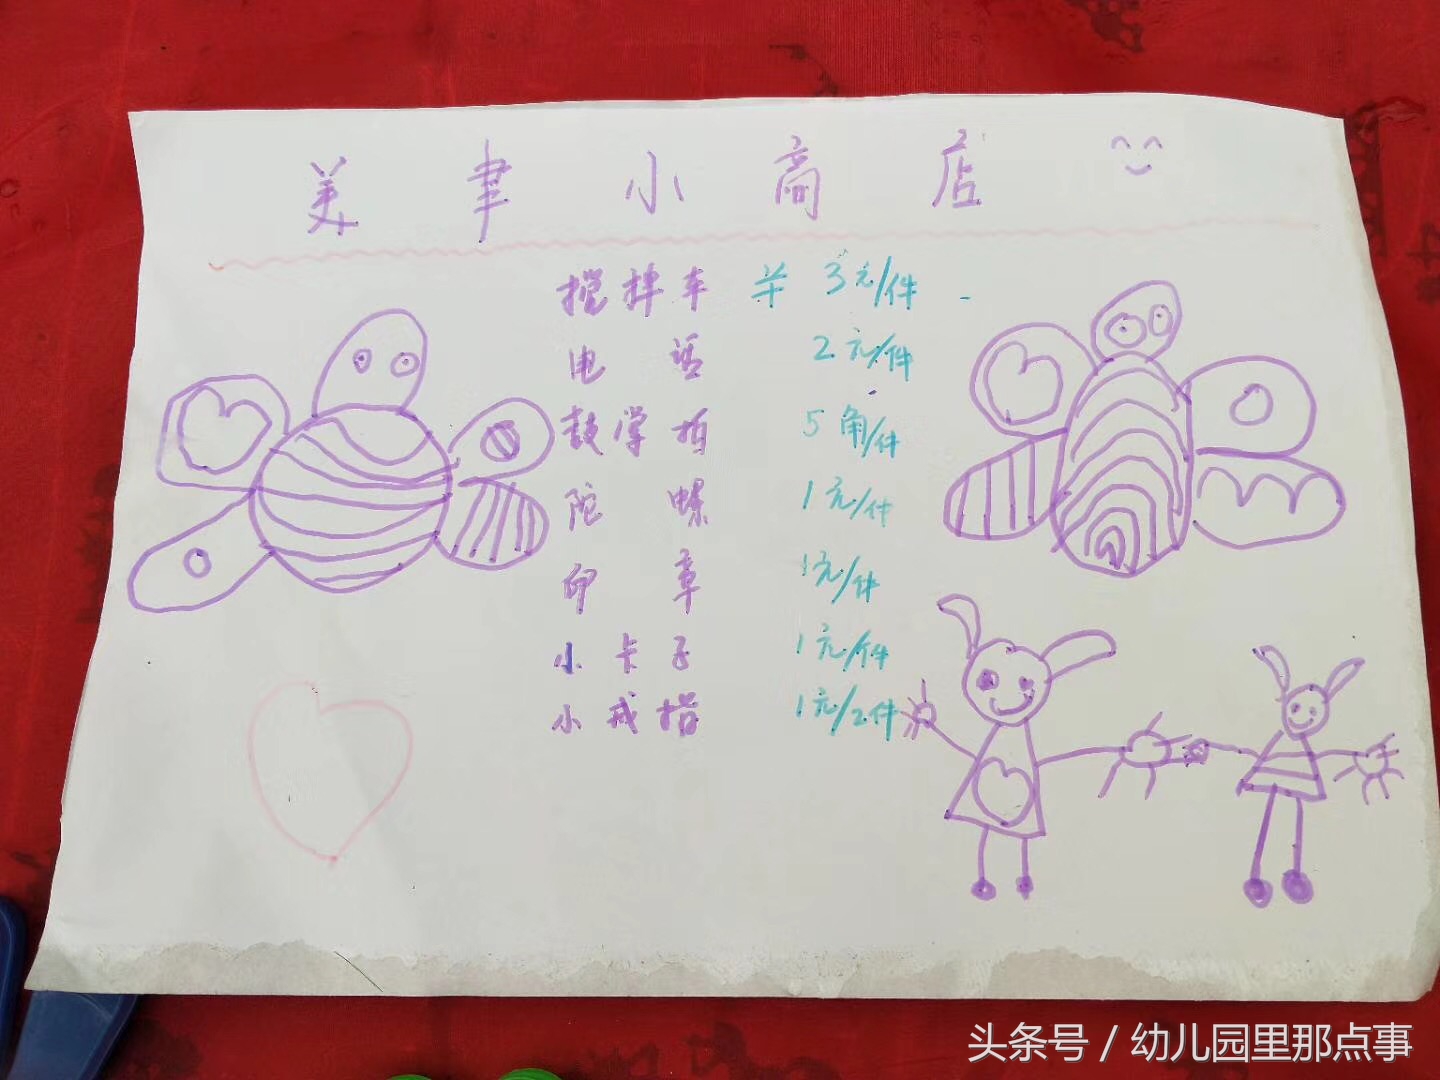 美聿小商店
搅拌车 3元/件
电话 2元/件
鼓掌拍 5角/件
陀螺 1元/件
印章 1元/件
小卡子 1元/件
小戒指 1元/2件
头条号 / 幼儿园里那点事